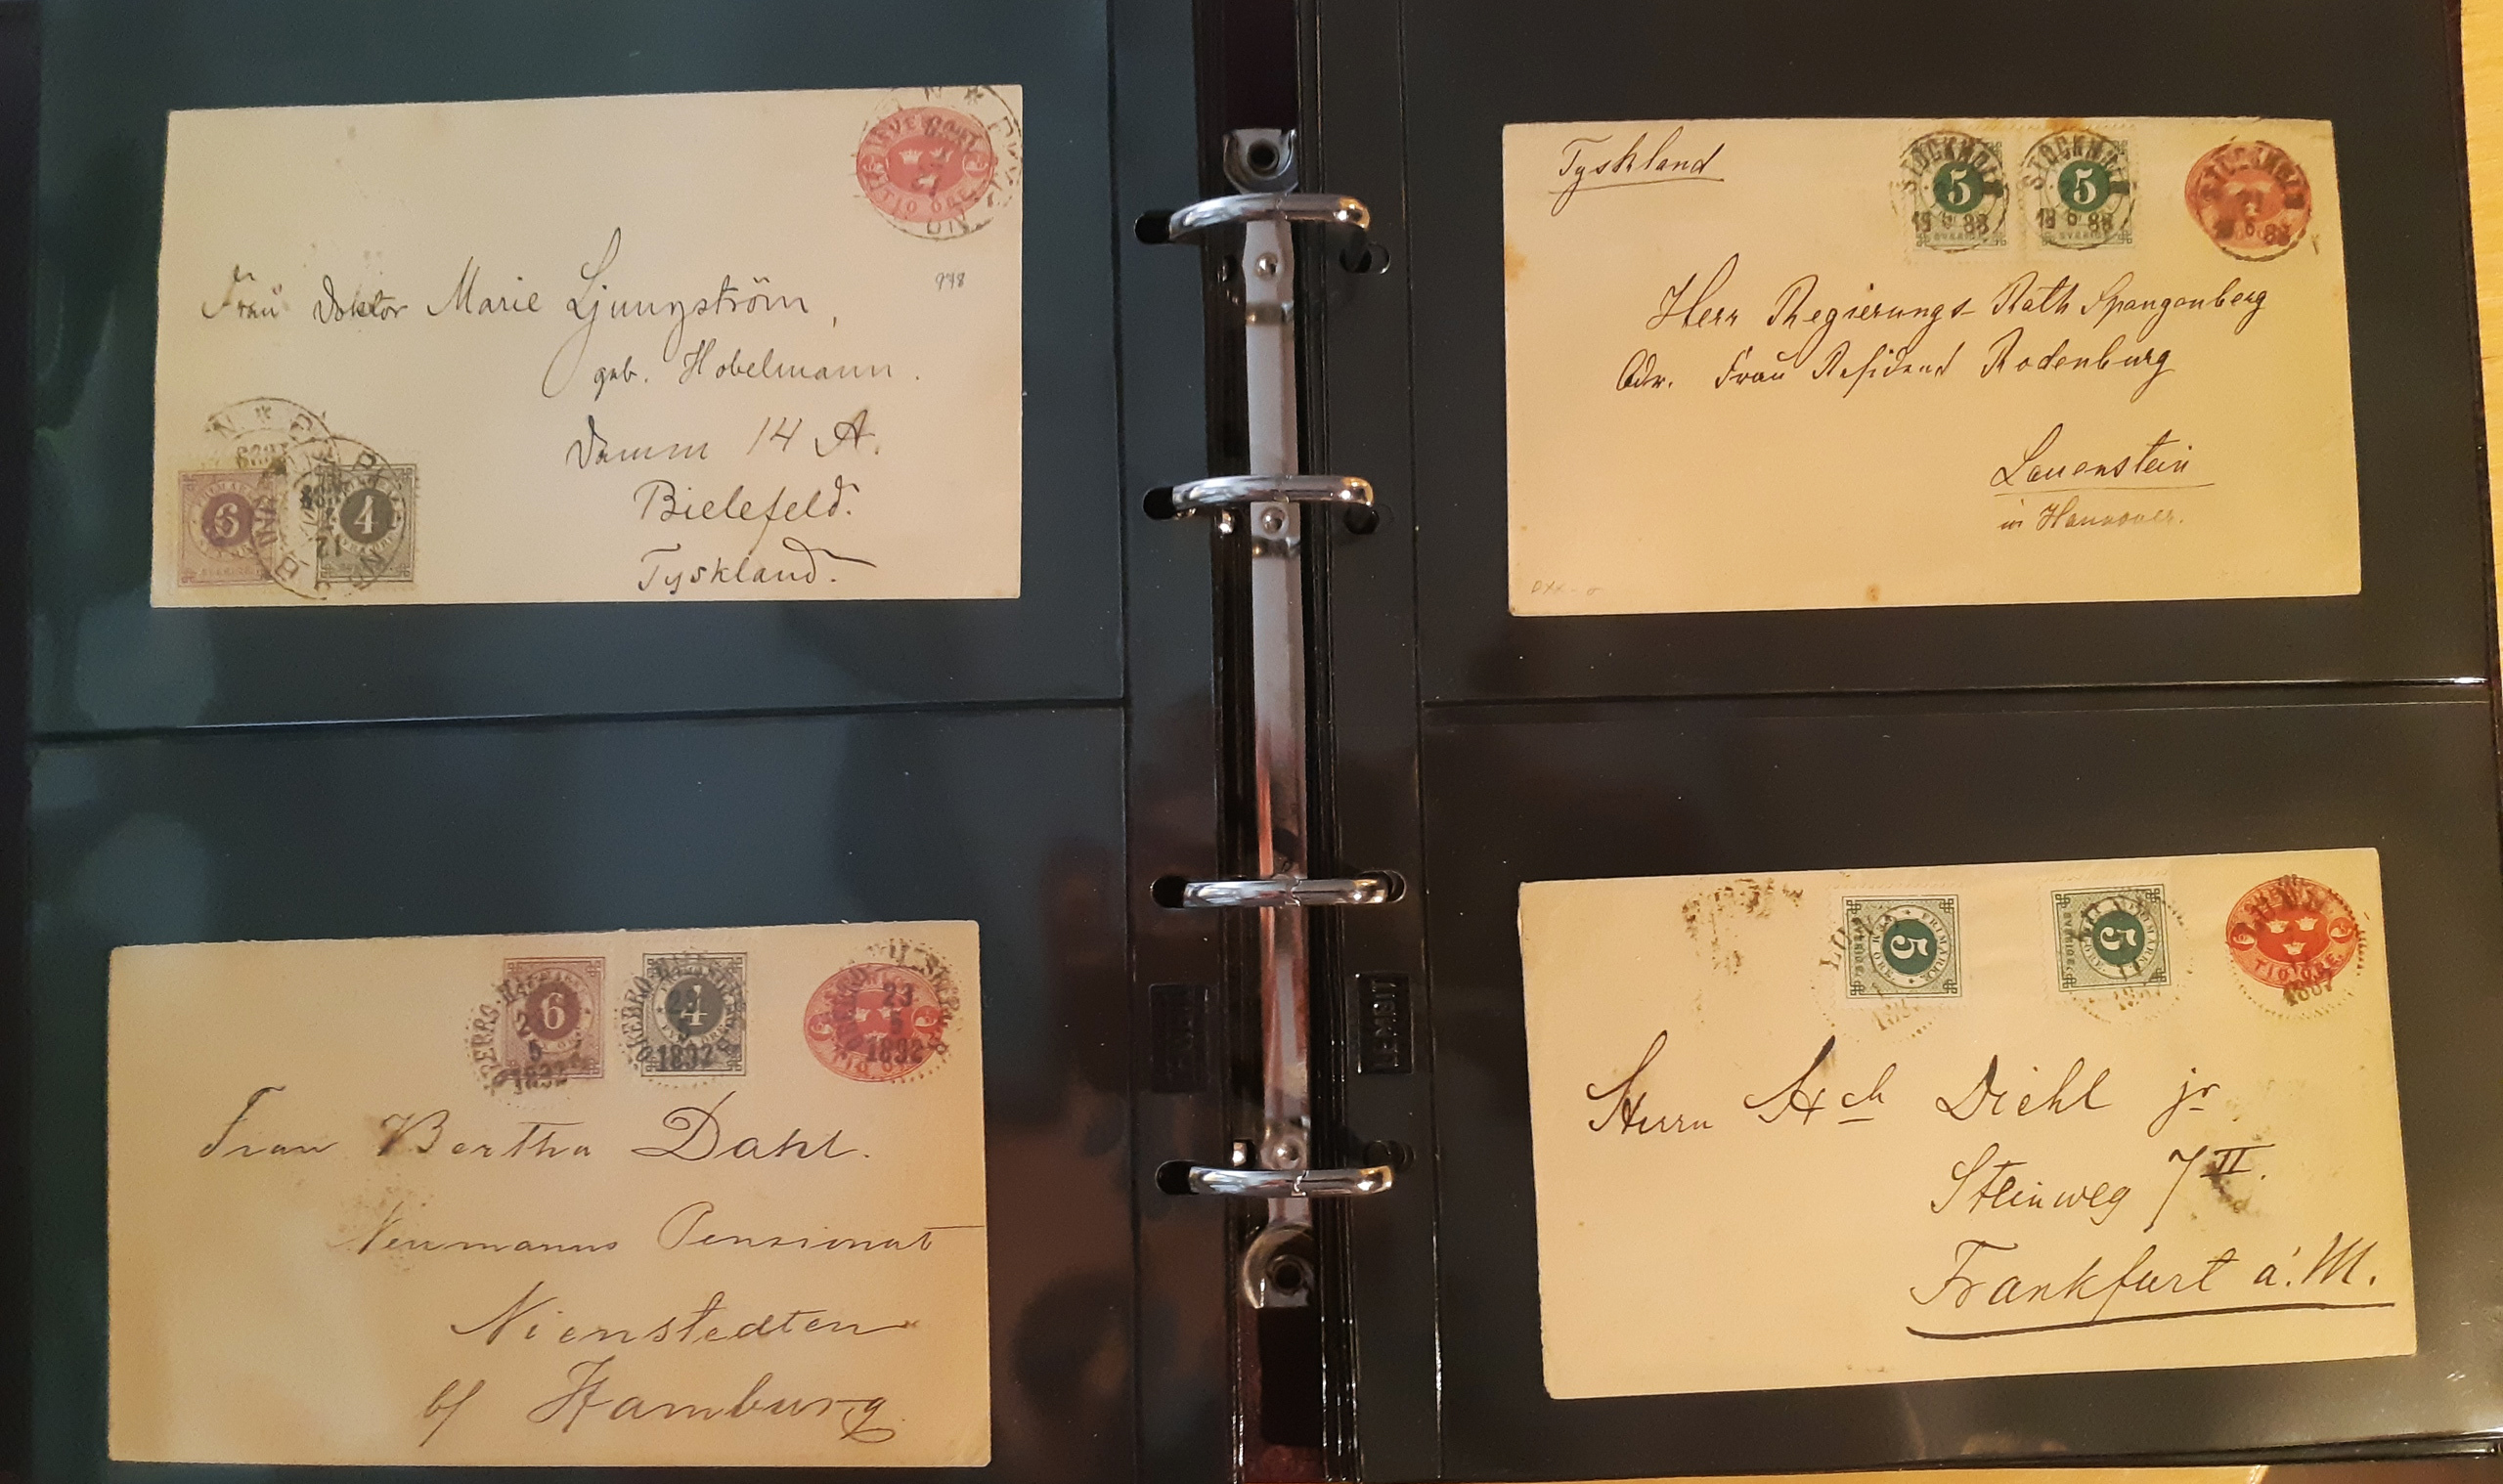 TIO ÖRE
Frau Doktor Marie Ljungström,
geb. Hobelmann.
Damm 14 A.
Bielefeld.
Tyskland.
6
4
Tyskland
STOCKHOLM
19 6 88
5
STOCKHOLM
19 6 88
5
Herr Regierungs-Rath Spangenberg
Adr. Frau Residend Rodenburg
Lauenstein
in Hannover.
6
4
1892
23
5
1892
Frau Bertha Dahl.
Neumanns Pensionat
Nienstedten
b/ Hamburg
5
FRIMÄRKE
SVERIGE
5
SVERIGE
TIO ÖRE
1887
Herrn Hch Diehl jr
Steinweg 7 II.
Frankfurt a. M.
LEMBIT